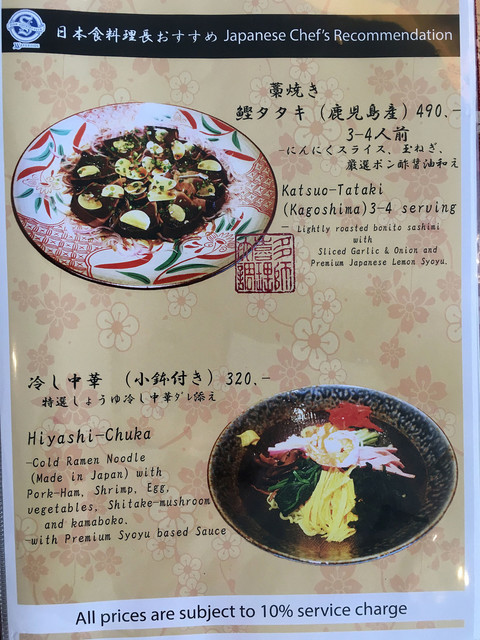 日本食料理長おすすめ Japanese Chef's Recommendation
藁焼き
鰹タタキ (鹿児島産) 490.-
3-4人前
-にんにくスライス、玉ねぎ、
厳選ポン酢醤油和え
Katsuo-Tataki
(Kagoshima)3-4 serving
- Lightly roasted bonito sashimi
with
Sliced Garlic & Onion and
Premium Japanese Lemon Syoyu.
冷し中華 (小鉢付き) 320.-
特選しょうゆ冷し中華ダレ添え
Hiyashi-Chuka
-Cold Ramen Noodle
(Made in Japan) with
Pork-Ham, Shrimp, Egg,
vegetables, Shitake-mushroom
and kamaboko.
-with Premium Syoyu based Sauce
All prices are subject to 10% service charge